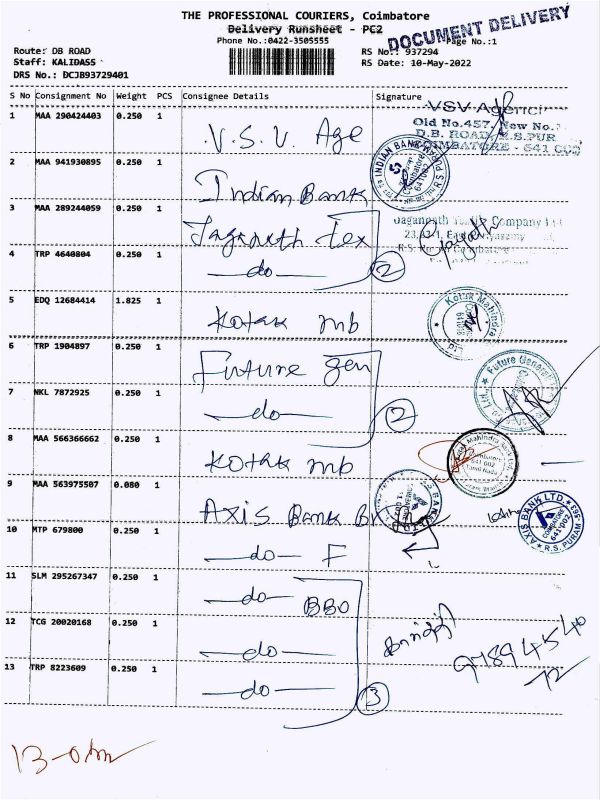 THE PROFESSIONAL COURIERS, Coimbatore
Delivery Runsheet - PC2
DOCUMENT DELIVERY
Phone No.:0422-3505555
Page No.:1
Route: DB ROAD
RS No.: 937294
Staff: KALIDASS
RS Date: 10-May-2022
DRS No.: DCJB93729401
S No Consignment No Weight PCS Consignee Details Signature
1 MAA 290424403 0.250 1 V.S.V. Age
VSV
Old No.457, New No.
D.B. ROAD, R.S.PUR
COIMBATORE - 641 002
2 MAA 941930895 0.250 1 Indian Bank
INDIAN BANK
Coimbatore
641002
3 MAA 289244059 0.250 1 Jaganath tex
Company
4 TRP 4640804 0.250 1 do 2
5 EDQ 12684414 1.825 1 Kotak mb
Kotak Mahindra
6 TRP 1904897 0.250 1 Future gen
Future General
7 NKL 7872925 0.250 1 do 2
8 MAA 566366662 0.250 1 Kotak mb
Mahindra Bank Ltd.
641 002
Tamil Nadu
9 MAA 563975507 0.080 1 Axis Bank Br
AXIS BANK LTD.
COIMBATORE
641 002
R.S. PURAM
10 MTP 679800 0.250 1 do F
11 SLM 295267347 0.250 1 do BBO
12 TCG 20020168 0.250 1 do
97894540
72
13 TRP 8223609 0.250 1 do 3
13-0